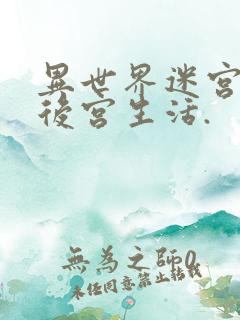 異世界迷宮
後宮生活.
無為之師0.
未經同意禁止轉載